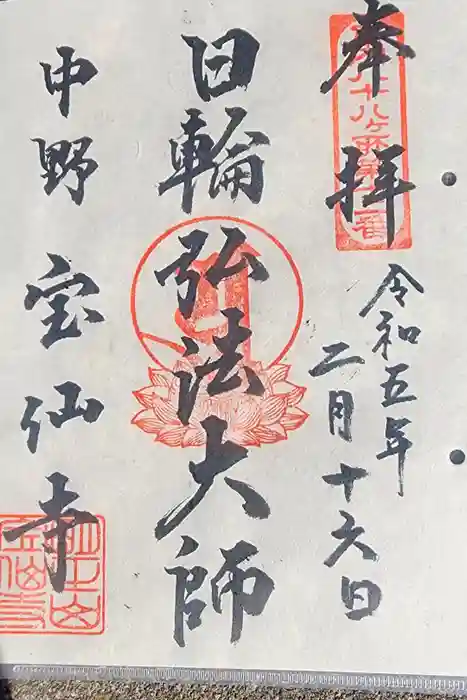 奉拝
令和五年
二月十六日
日輪弘法大師
中野 宝仙寺